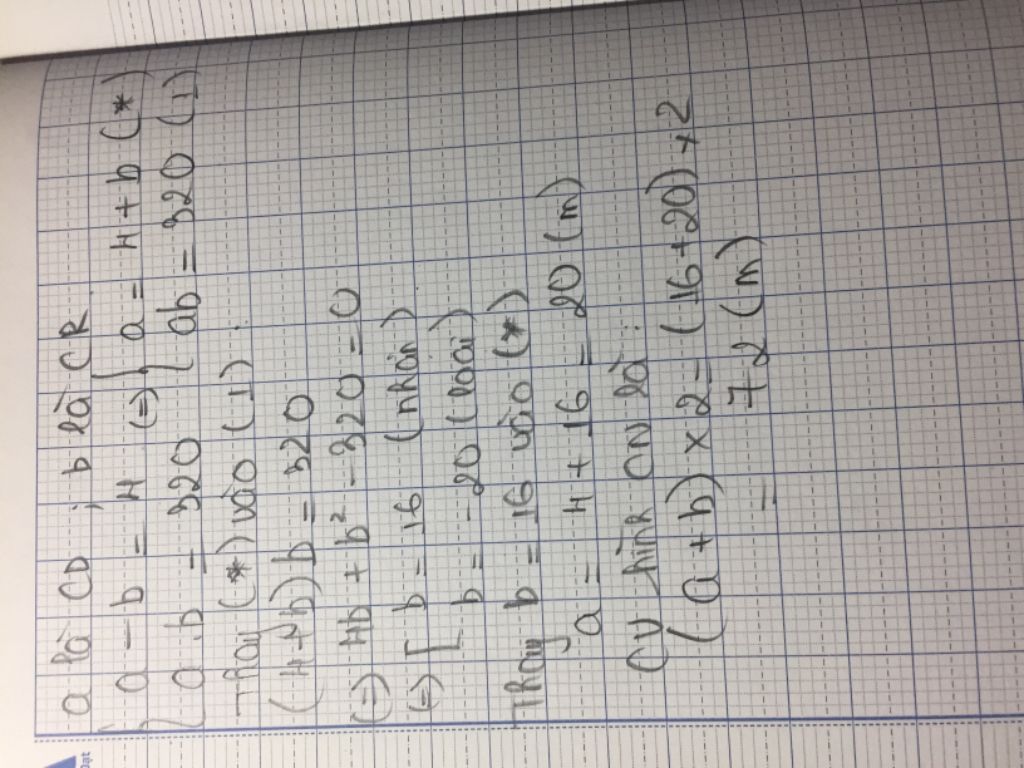 a là CD ; b là CR
{ a - b = 4 (=) { a = 4 + b (*)
{ a . b = 320 { ab = 320 (1)
Thay (*) vào (1) :
(4+b) b = 320
(=) 4b + b² - 320 = 0
(=) [ b = 16 (nhận)
[ b = -20 (loại)
Thay b = 16 vào (*)
a = 4 + 16 = 20 (m)
CV hình CN là :
(a + b) × 2 = (16+20) × 2
= 72 (m)